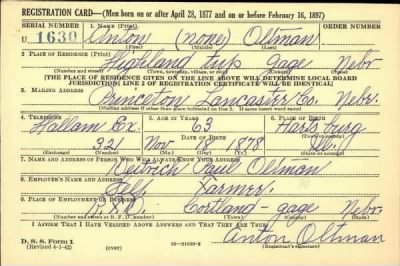 REGISTRATION CARD—(Men born on or after April 28, 1877 and on or before February 16, 1897)
SERIAL NUMBER 1. NAME (Print) ORDER NUMBER
U 1630 Anton (none) Oltman
(First) (Middle) (Last)
2. PLACE OF RESIDENCE (Print)
Highland twp Gage Nebr
(Number and street) (Town, township, village, or city) (County) (State)
[THE PLACE OF RESIDENCE GIVEN ON THE LINE ABOVE WILL DETERMINE LOCAL BOARD
JURISDICTION; LINE 2 OF REGISTRATION CERTIFICATE WILL BE IDENTICAL]
3. MAILING ADDRESS
Princeton Lancaster Co. Nebr.
[Mailing address if other than place indicated on line 2. If same insert word same]
4. TELEPHONE 5. AGE IN YEARS 6. PLACE OF BIRTH
Hallam Ex. 63 Hartsburg
DATE OF BIRTH (Town or county)
321 Nov 18 1878 Ill.
(Exchange) (Number) (Mo.) (Day) (Yr.) (State or country)
7. NAME AND ADDRESS OF PERSON WHO WILL ALWAYS KNOW YOUR ADDRESS
Paul Oltman
8. EMPLOYER'S NAME AND ADDRESS
Self Farmer
9. PLACE OF EMPLOYMENT OR BUSINESS
R.F.D. Cortland - Gage Nebr.
(Number and street or R. F. D. number) (Town) (County) (State)
I AFFIRM THAT I HAVE VERIFIED ABOVE ANSWERS AND THAT THEY ARE TRUE.
D. S. S. Form 1
(Revised 4-1-42) (over) Anton Oltman
(Registrant's signature)